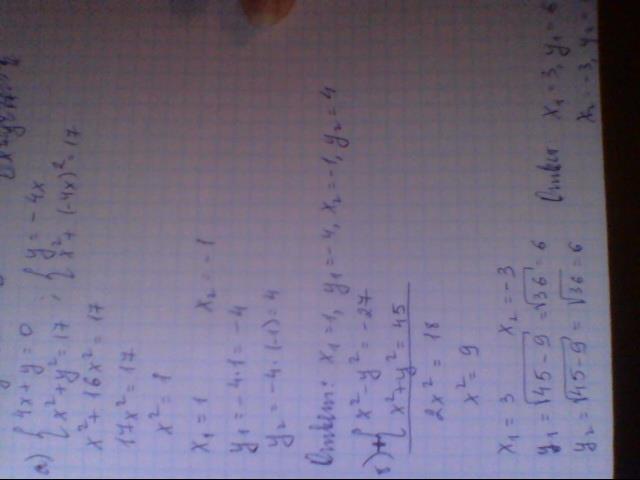 а) { 4x+y=0
{ x²+y²=17 ; { y=-4x
{ x²+(-4x)²=17
x²+16x²=17
17x²=17
x²=1
x₁=1 x₂=-1
y₁=-4·1=-4
y₂=-4·(-1)=4
Ответ: x₁=1, y₁=-4, x₂=-1, y₂=4
б) + { x²-y²=-27
{ x²+y²=45
2x²=18
x²=9
x₁=3 x₂=-3
y₁=√45-9=√36=6
y₂=√45-9=√36=6
Ответ x₁=3, y₁=6
x₂=-3, y₂=